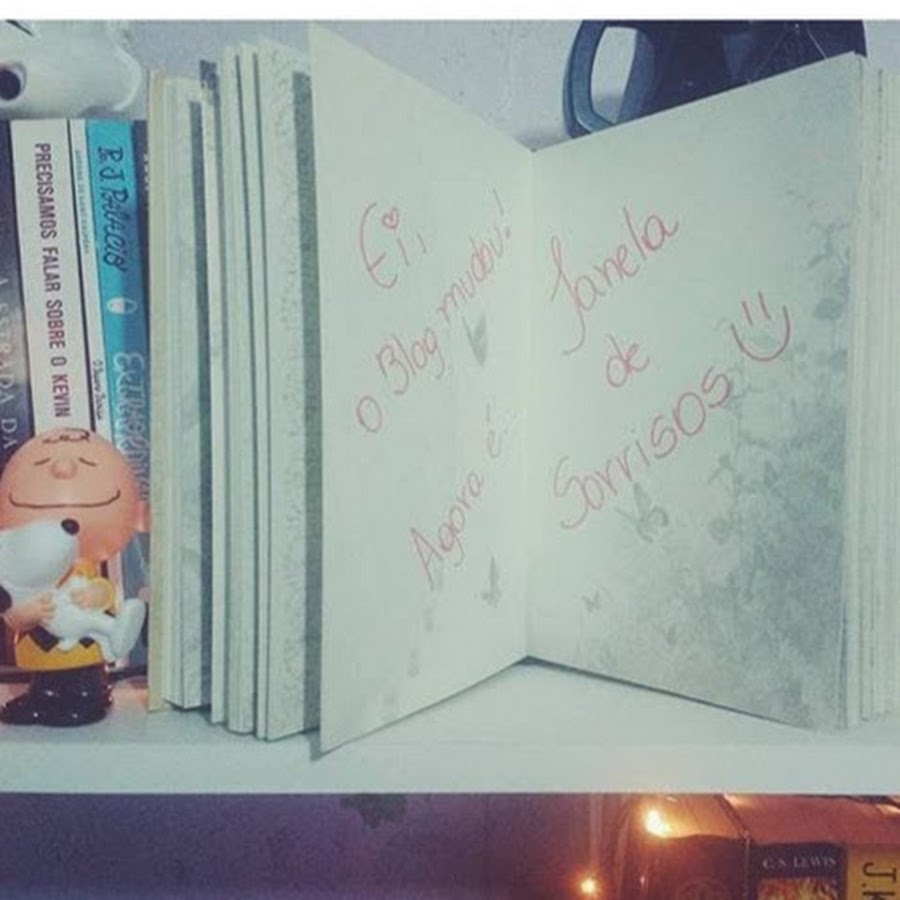 PRECISAMOS FALAR SOBRE O KEVIN
R. J. PALACIO
A ESTRADA DA
Ei,
o Blog mudou!
Agora é:
Janela
de
Sorrisos
C. S. LEWIS